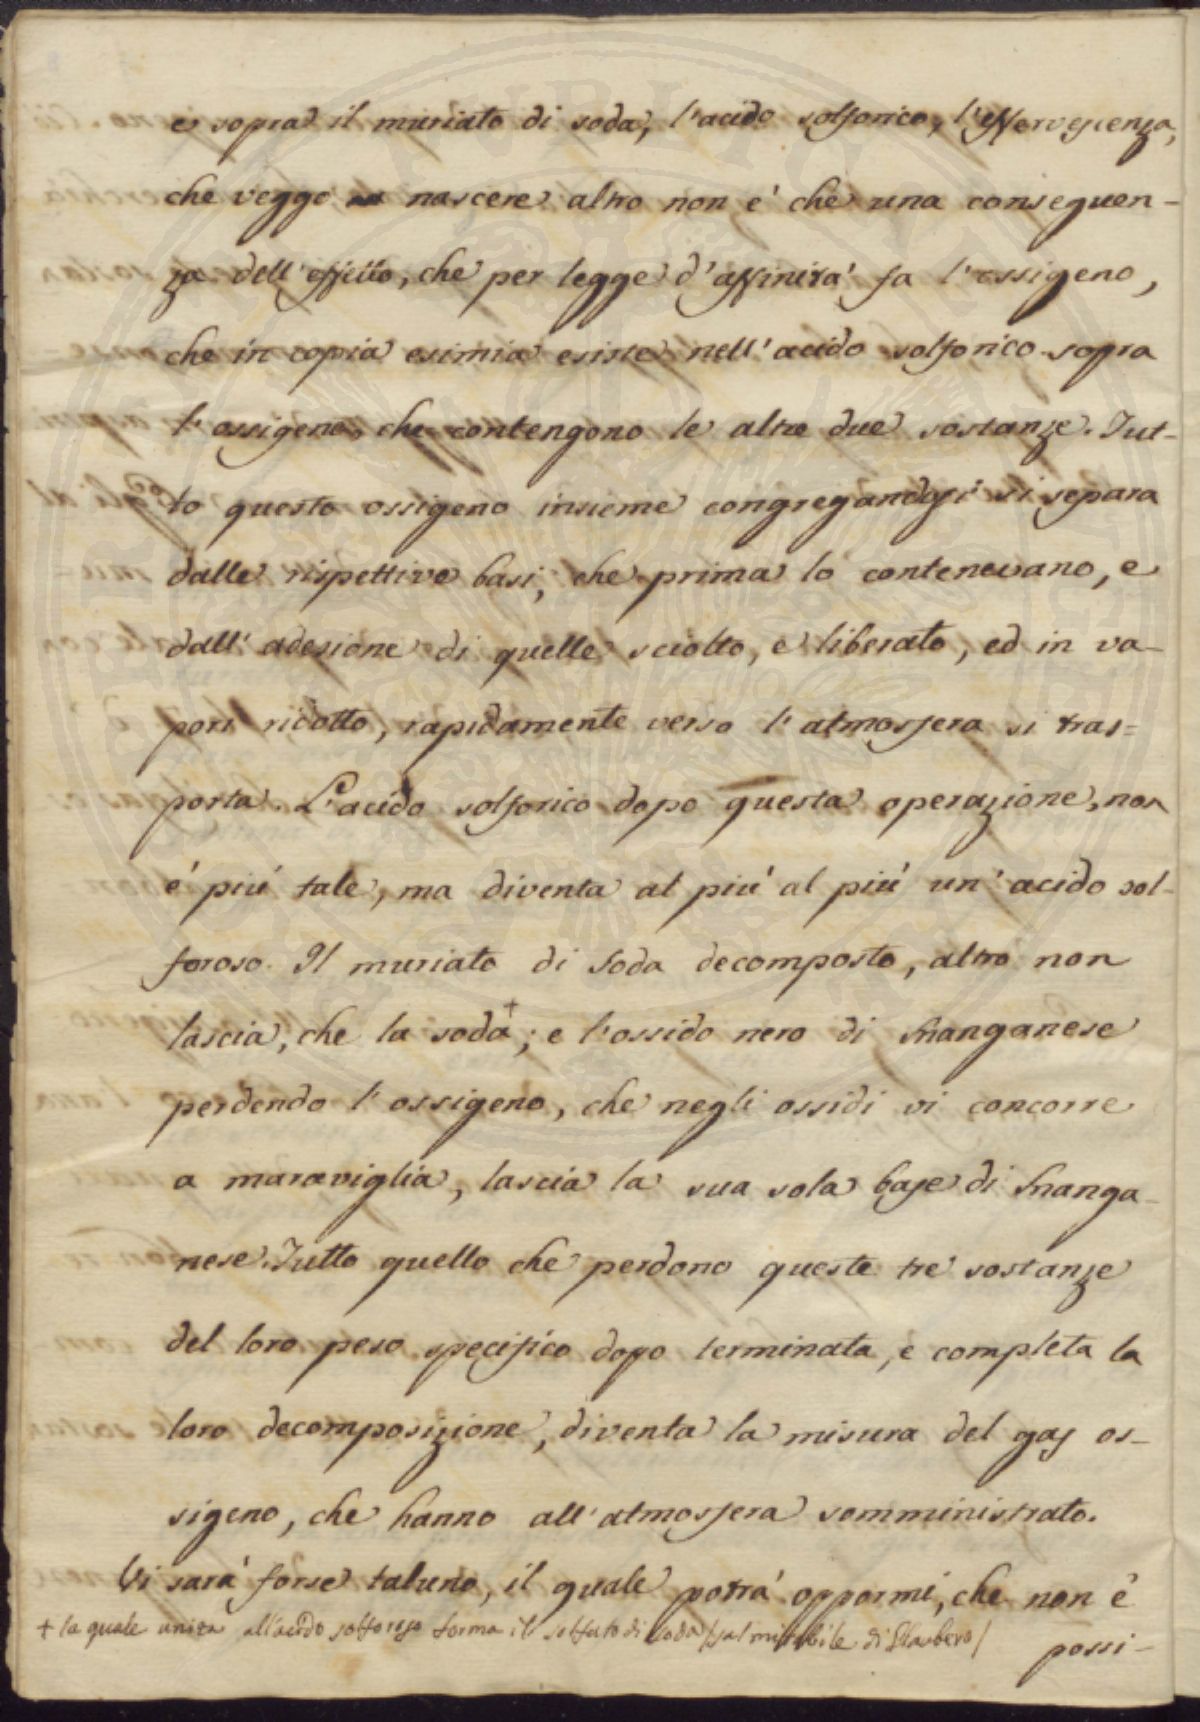 e sopra il muriato di soda, l'acido solforico, l'effervescenza,
che veggo nascere altro non é che una conseguen-
za dell'effetto, che per legge d'affinitá fa l'ossigeno,
che in copia esimia esiste nell'acido solforico sopra
l'ossigeno, che contengono le altre due sostanze. Tut-
to questo ossigeno insieme congregandosi si separa
dalle rispettive basi, che prima lo contenevano, e
dall'adesione di quelle sciolto, e liberato, ed in va-
pori ridotto, rapidamente verso l'atmosfera si tras=
porta. L'acido solforico dopo questa operazione, non
é piú tale, ma diventa al piú al piú un'acido sol-
foroso. Il muriato di Soda decomposto, altro non
lascia, che la soda+; e l'ossido nero di Manganese
perdendo l'ossigeno, che negli ossidi vi concorre
a maraviglia, lascia la sua sola base di Manga-
nese. Tutto quello che perdono queste tre sostanze
del loro peso specifico dopo terminata, e completa la
loro decomposizione, diventa la misura del gas os-
sigeno, che hanno all'atmosfera somministrato.
Vi sará forse taluno, il quale potrá oppormi, che non é
+ la quale unita all'acido solforoso forma il solfato di soda / sal mirabile di Glaubero /
possi-